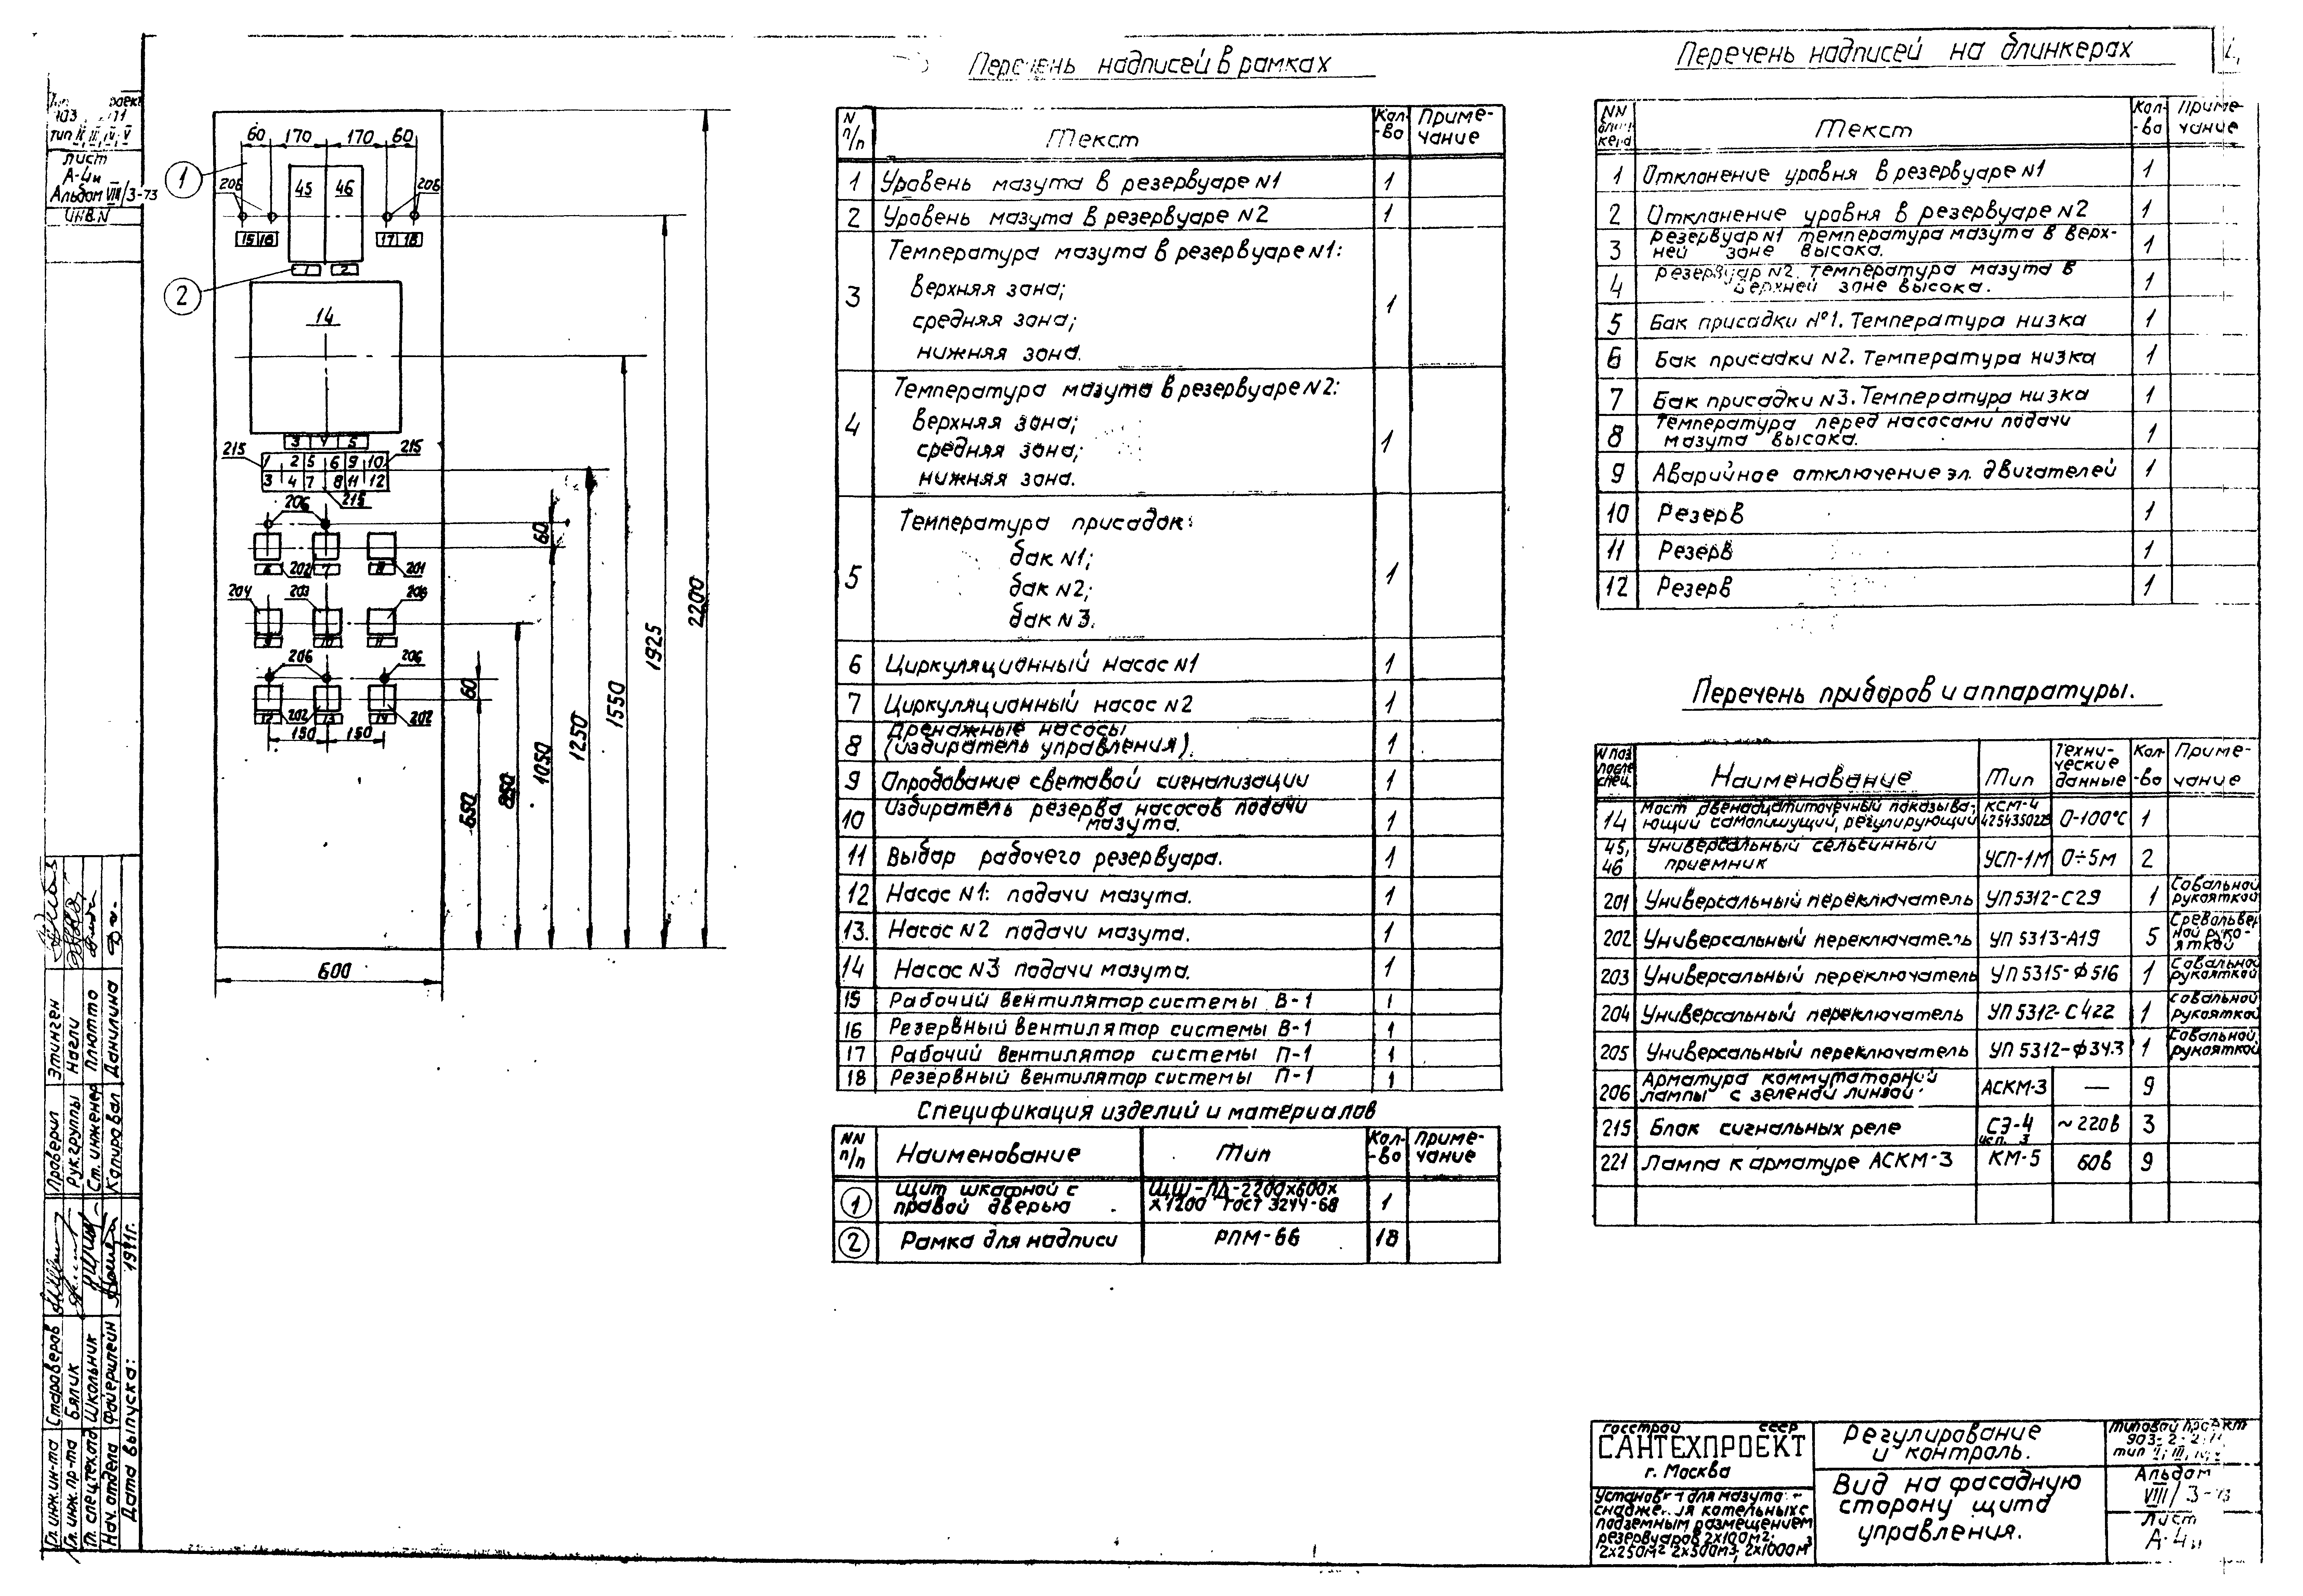 Перечень надписей в рамках
N п/п
Текст
Кол-во
Примечание
1 Уровень мазута в резервуаре N1 1
2 Уровень мазута в резервуаре N2 1
3 Температура мазута в резервуаре N1: 1
верхняя зона;
средняя зона;
нижняя зона.
4 Температура мазута в резервуаре N2: 1
верхняя зона;
средняя зона;
нижняя зона.
5 Температура присадок: 1
бак N1;
бак N2;
бак N3.
6 Циркуляционный насос N1 1
7 Циркуляционный насос N2 1
8 Дренажные насосы
(избиратель управления). 1
9 Опробование световой сигнализации 1
10 Избиратель резерва насосов подачи
мазута. 1
11 Выбор рабочего резервуара. 1
12 Насос N1: подачи мазута. 1
13. Насос N2 подачи мазута. 1
14 Насос N3 подачи мазута. 1
15 Рабочий вентилятор системы В-1 1
16 Резервный вентилятор системы В-1 1
17 Рабочий вентилятор системы П-1 1
18 Резервный вентилятор системы П-1 1
Спецификация изделий и материалов
NN п/п
Наименование
Тип
Кол-во
Примечание
1 Щит шкафной с
правой дверью
ЩШ-ПД-2200х600х
х1200 ГОСТ 3244-68 1
2 Рамка для надписи РПМ-66 18
Перечень надписей на блинкерах
NN блинкера
Текст
Кол-во
Примечание
1 Отклонение уровня в резервуаре N1 1
2 Отклонение уровня в резервуаре N2 1
3 резервуар N1 температура мазута в верх-
ней зоне высока. 1
4 резервуар N2. температура мазута в
верхней зоне высока. 1
5 Бак присадки №1. Температура низка 1
6 Бак присадки N2. Температура низка 1
7 Бак присадки N3. Температура низка 1
8 Температура перед насосами подачи
мазута высока. 1
9 Аварийное отключение эл. двигателей 1
10 Резерв 1
11 Резерв 1
12 Резерв 1
Перечень приборов и аппаратуры.
N поз. после спец.
Наименование
Тип
Технические данные
Кол-во
Примечание
14 Мост двенадцатиточечный показыва-
ющий самопишущий, регулирующий
КСМ-4 0-100°С 1
45, 46 Универсальный сельсинный
приемник УСП-1М 0÷5м 2
201 Универсальный переключатель УП 5312-С29 1 С овальной рукояткой
202 Универсальный переключатель УП 5313-А19 5 С револьверной рукояткой
203 Универсальный переключатель УП 5315-Ф516 1 С овальной рукояткой
204 Универсальный переключатель УП 5312-С422 1 с овальной рукояткой
205 Универсальный переключатель УП 5312-Ф343 1 С овальной рукояткой
206 Арматура коммутаторной
лампы с зеленой линзой АСКМ-3 — 9
215 Блок сигнальных реле СЭ-4
исп. 3 ~220в 3
221 Лампа к арматуре АСКМ-3 КМ-5 60в 9
60 170 170 60
1
206 45 46 206
15 16 17 18
1 2
2
14
3 4 5
215 1 2 5 6 9 10 215
3 4 7 8 11 12
215
206
60
6 202 7 8 201
204 203
9 10 11
206 206
60
12 202 13 14 202
150 150
650
850
1050
1250
1550
1925
2200
600
тип II, III, IV, V
лист
А-4и
Альбом VIII/3-73
ИНВ.N
Проверил Этинген
Рук.группы Нагли
Ст. инженер Плютто
Копировал Данилина
Гл. инж. ин-та Староверов
Гл. инж. пр-та Бялик
Гл. спец. тех. отд. Школьник
Нач. отдела Файерштейн
Дата выпуска: 1971г.
госстрой СССР
САНТЕХПРОЕКТ
г. Москва
Установка для мазуто-
снабжения котельных с
подземным размещением
резервуаров 2х100м²;
2х250м² 2х500м³; 2х1000м³
Регулирование
и контроль.
Вид на фасадную
сторону щита
управления.
типовой проект
903-2-
тип II, III, IV, V
Альбом
VIII/3-73
Лист
А-4и